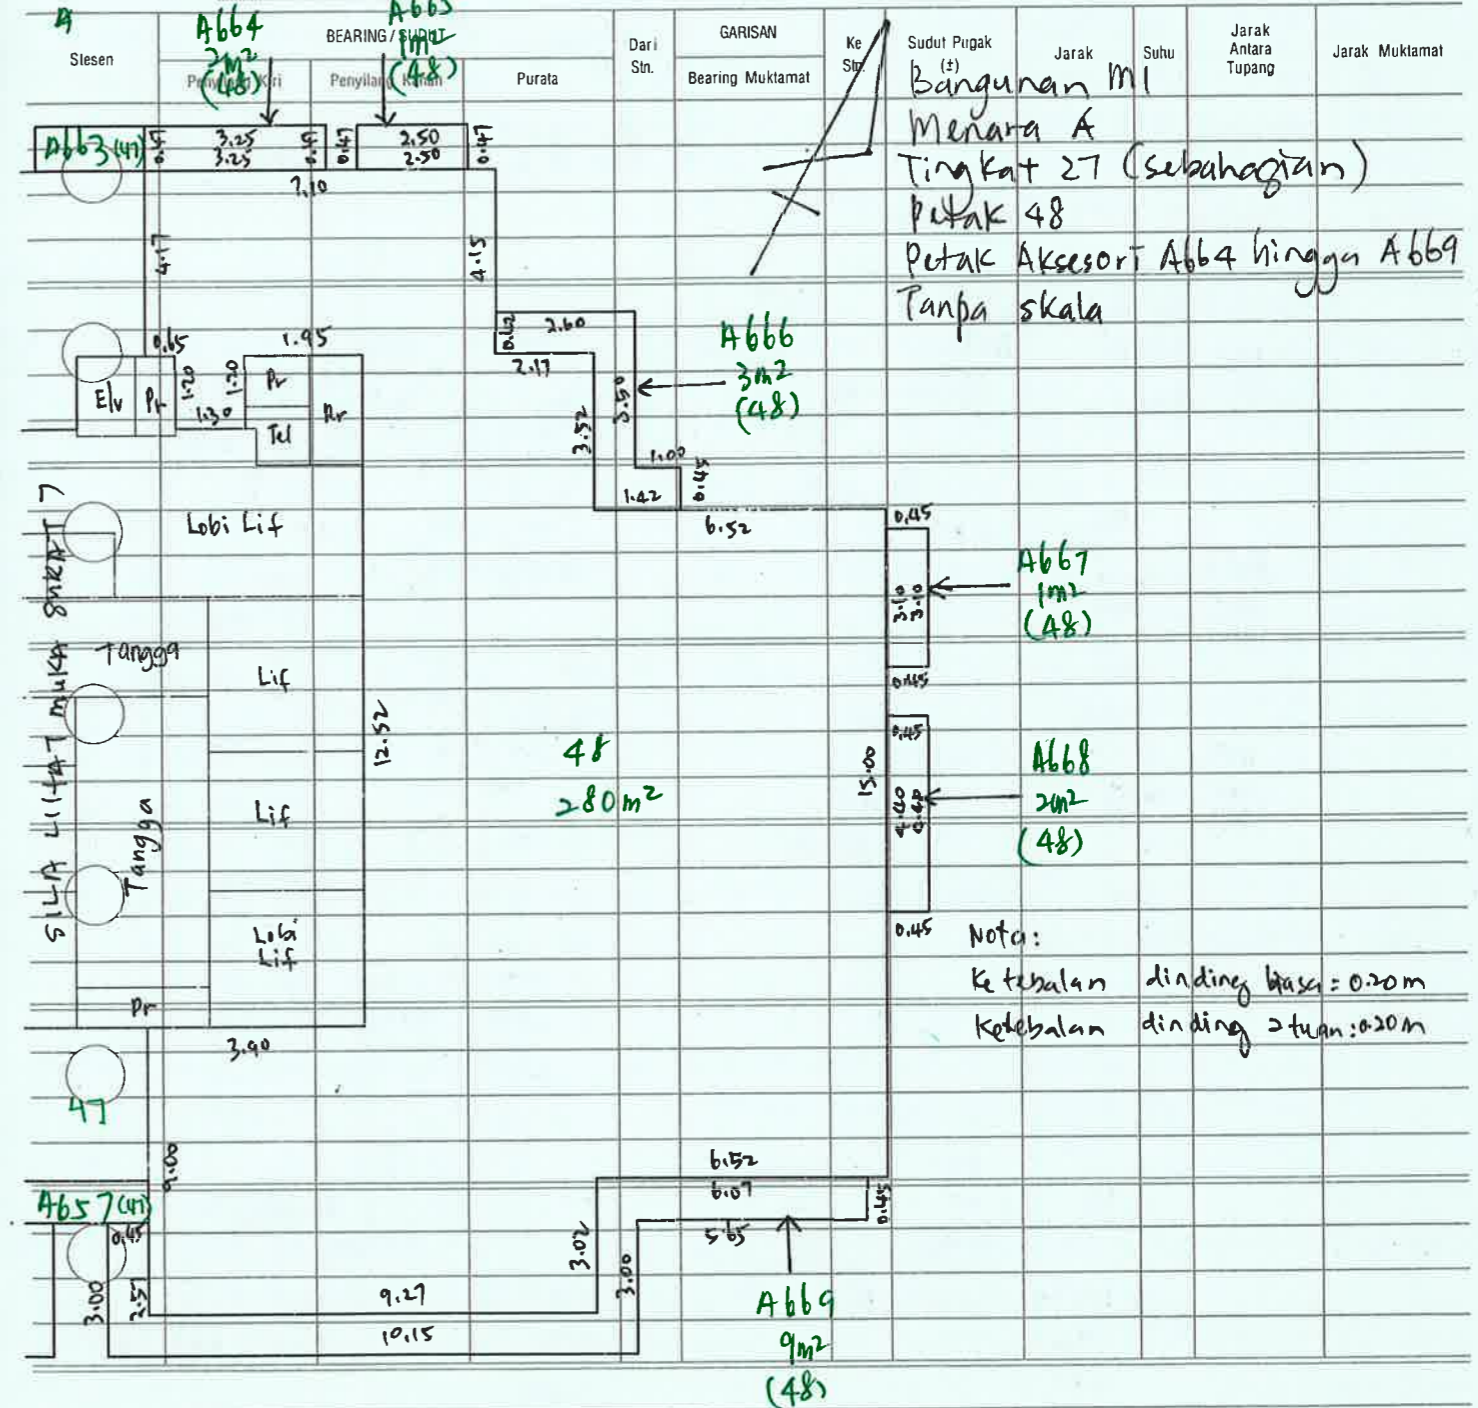 A
Stesen
BEARING / SUDUT
Penyilang Kiri
Penyilang Kanan
Purata
Dari
Stn.
GARISAN
Bearing Muktamat
Ke
Stn.
Sudut Pugak
(±)
Jarak
Suhu
Jarak
Antara
Tupang
Jarak Muktamat
A664
2m²
(48)
A665
1m²
(48)
Bangunan M1
Menara A
Tingkat 27 (sebahagian)
Petak 48
Petak Aksesori A664 hingga A669
Tanpa skala
A663 (47)
0.47
3.25
3.25
0.47
0.47
2.50
2.50
0.47
7.10
4.17
4.15
0.65
1.95
0.62
2.60
2.17
A666
3m²
(48)
Elv
Pr
1.20
1.30
1.20
Pr
Tel
Rr
3.52
3.50
1.00
0.45
1.42
6.52
Lobi Lif
0.45
3.10
3.10
0.45
A667
1m²
(48)
SILA LIHAT MUKA SURAT 7
Tangga
Lif
12.52
48
280m²
15.00
0.45
4.40
4.40
0.45
A668
2m²
(48)
Tangga
Lif
Lobi
Lif
Pr
Nota:
Ketebalan dinding biasa = 0.20m
Ketebalan dinding 2 tuan: 0.20m
3.90
47
9.00
6.52
6.07
5.65
0.45
A657 (47)
0.45
3.00
2.57
3.02
3.00
9.27
10.15
A669
9m²
(48)